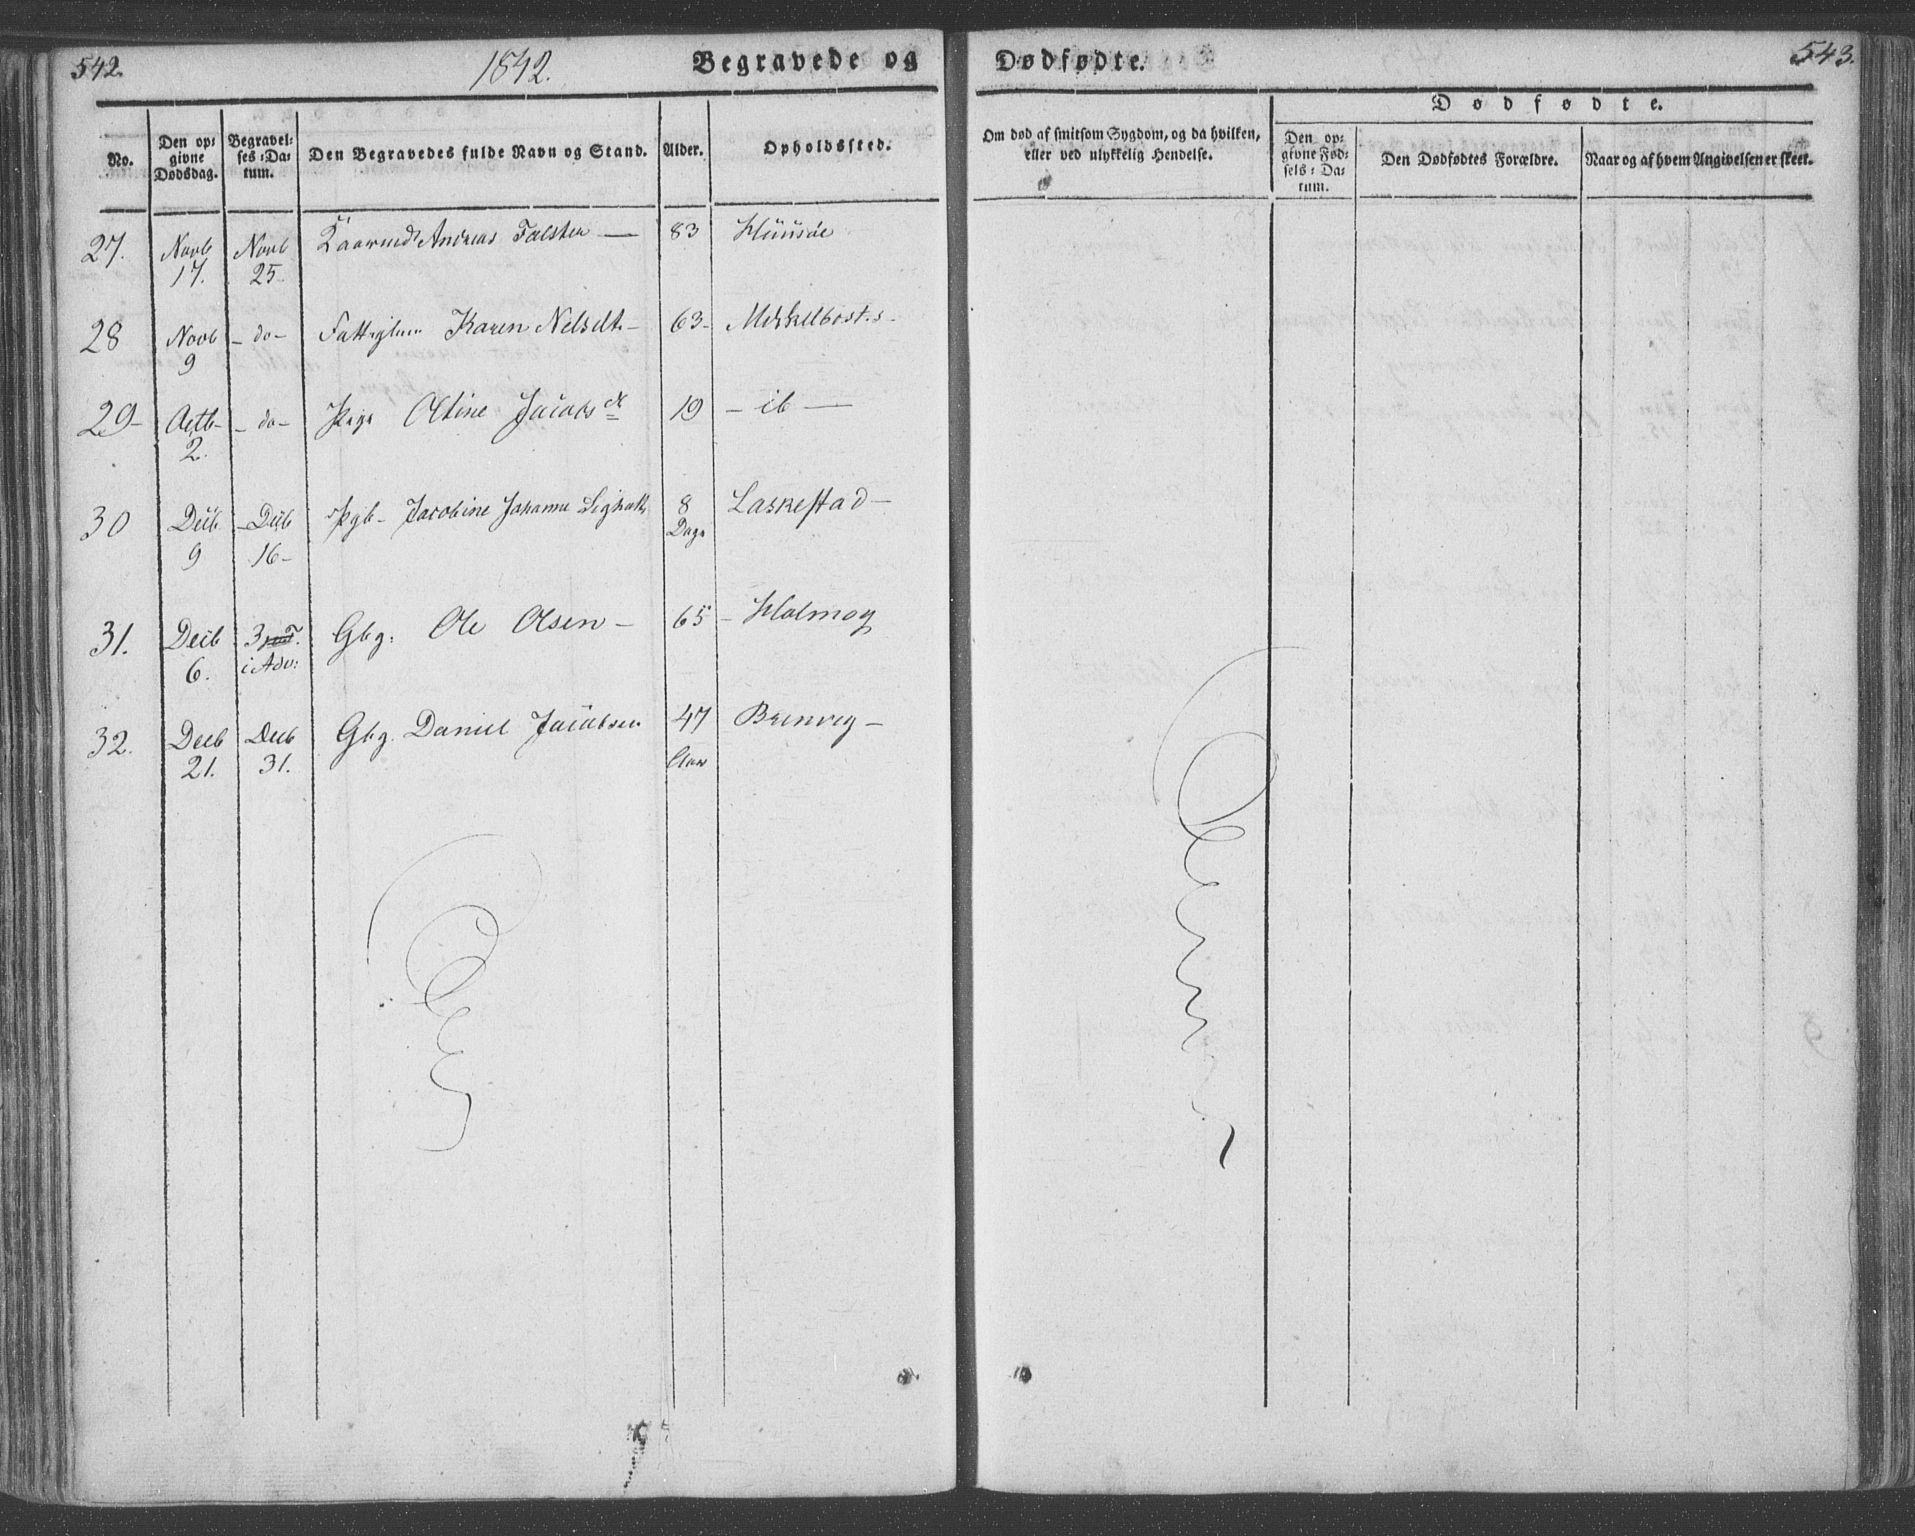 542.
1842.
Begravede og
Dødfødte.
543.
No.
Den opgivne Dødsdag.
Begravelses-Datum.
Den Begravedes fulde Navn og Stand.
Alder.
Opholdssted.
Om død af smitsom Sygdom, og da hvilken, eller ved ulykkelig Hendelse.
Dødfødte.
Den opgivne Fødsels-Datum.
Den Dødfødtes Forældre.
Naar og af hvem Angivelsen er skeet.
27. Novb 17. Novb 25- Andreas Falsten — 83
28 Novb 9 - do - Karen Nelsdt- 63-
29- 2. - do - Oline Jacobsd 19 - ib —
30 9 16- Jacobine Johanna 8 Dage Laskestad-
31. Decb 6. 3 i Adv: Gbg. Ole Olsen - 65 - Holmog
32. Decb 21. Decb 31. Gbg. Daniel Jacobsen 47 Aar Brenvig-